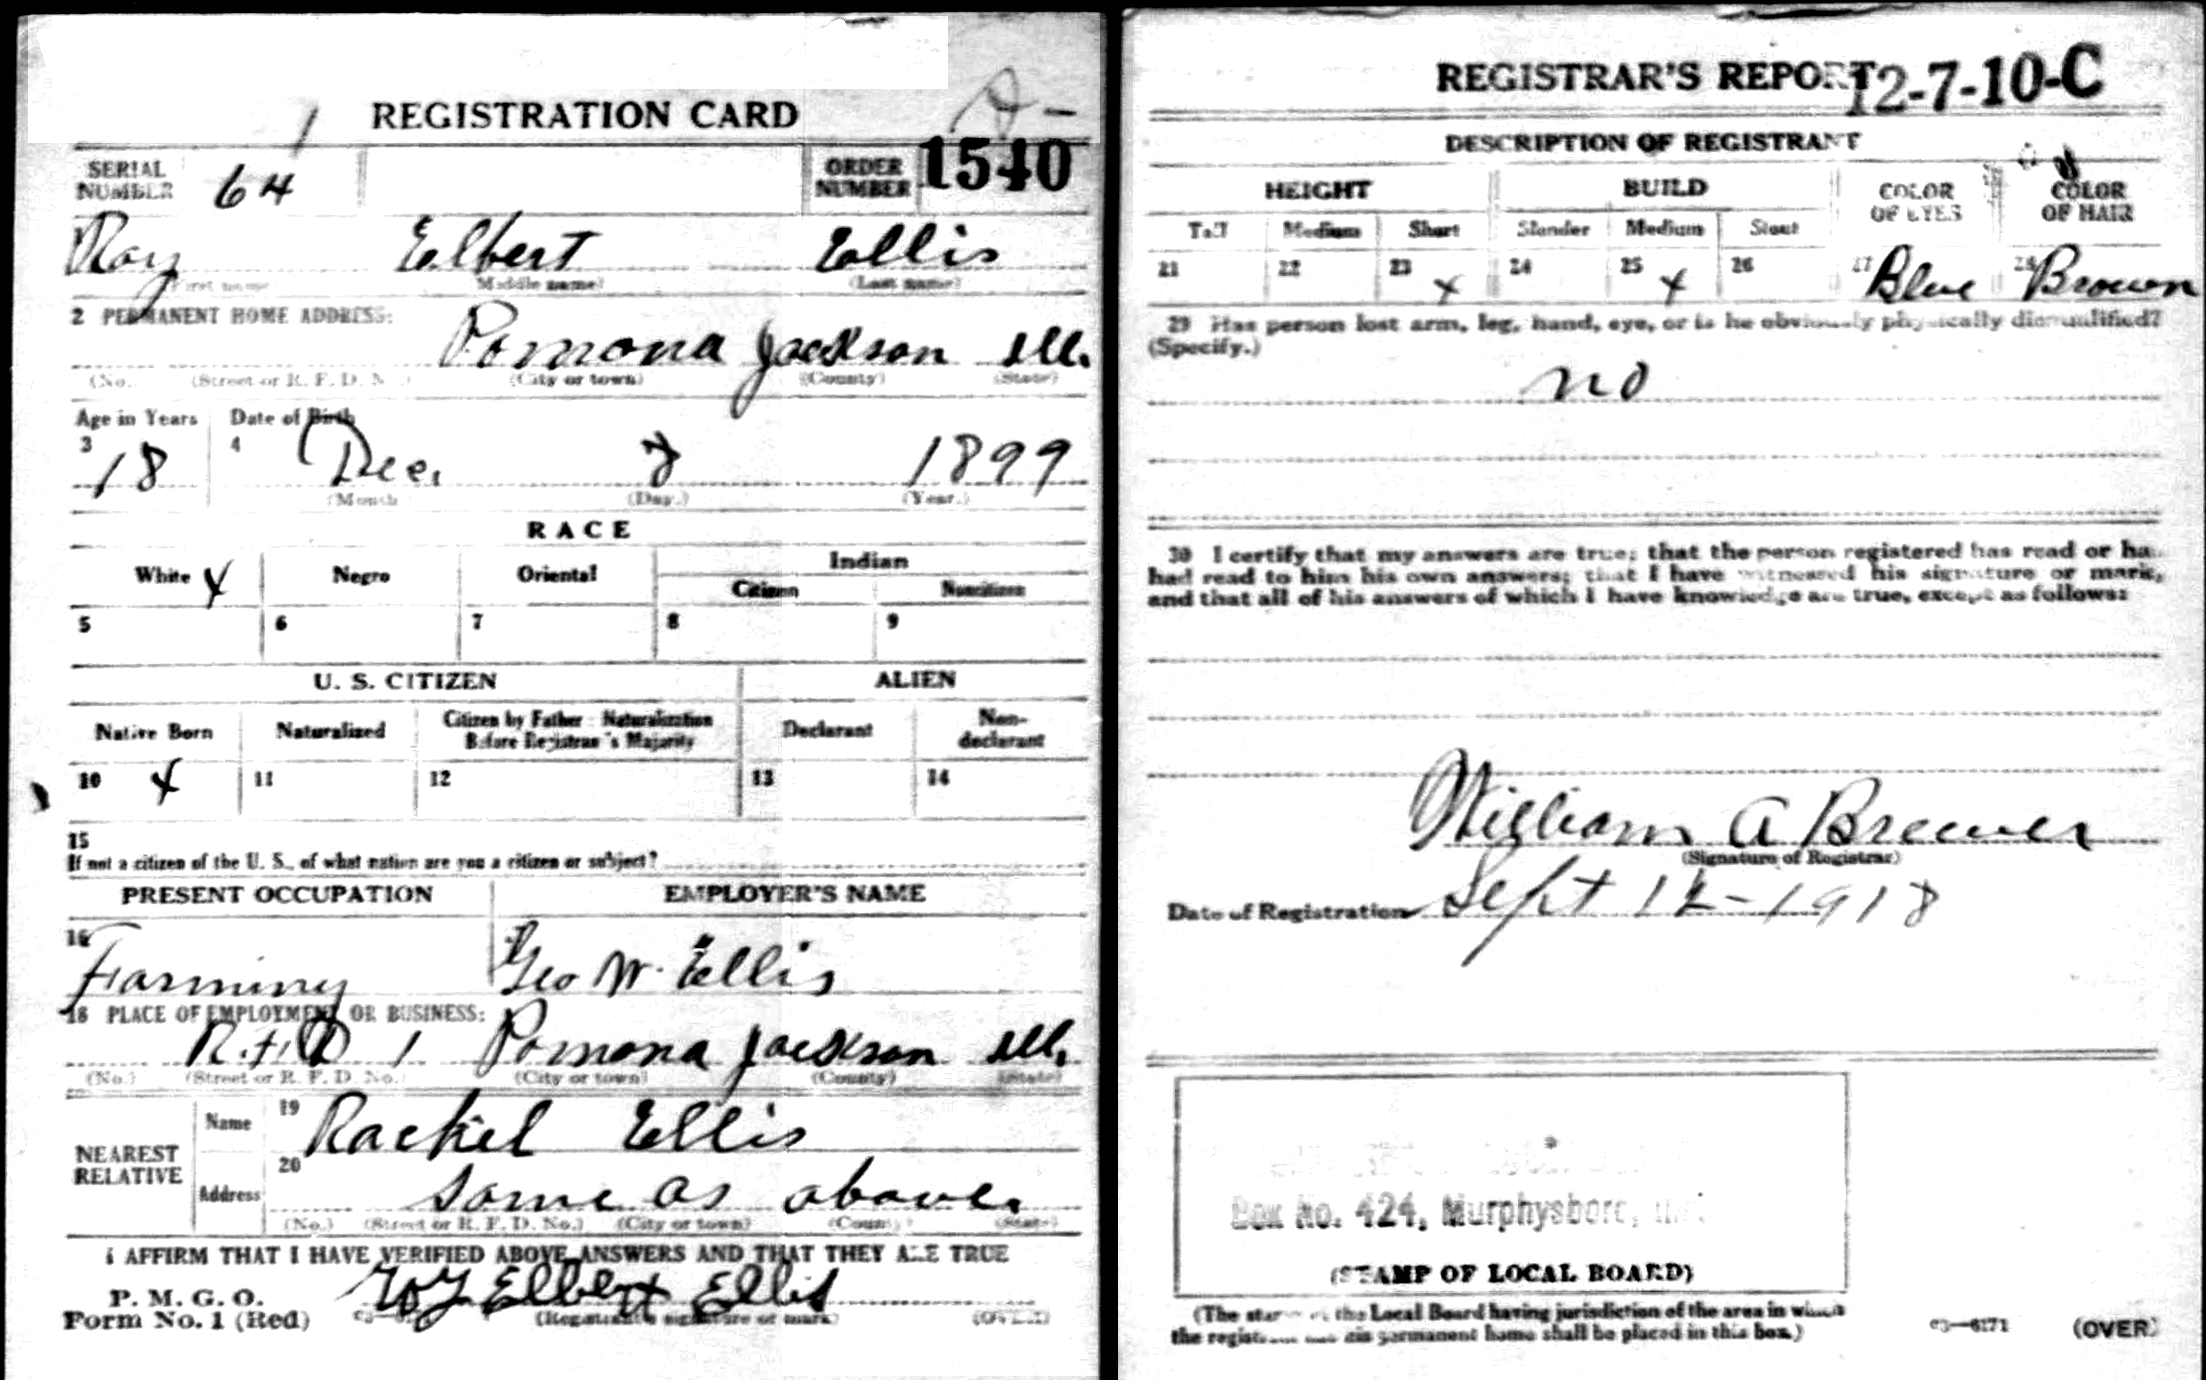 REGISTRATION CARD
SERIAL NUMBER 64
ORDER NUMBER 1540
Roy Elbert Ellis
(First name) (Middle name) (Last name)
2 PERMANENT HOME ADDRESS:
Pomona Jackson Ill.
(No.) (Street or R. F. D. No.) (City or town) (County) (State)
Age in Years Date of Birth
3 18 4 Dec. 1899
(Month) (Day.) (Year.)
RACE
White x Negro Oriental Indian
Citizen Noncitizen
5 6 7 8 9
U. S. CITIZEN ALIEN
Native Born Naturalized Citizen by Father's Naturalization Before Registrant's Majority Declarant Non-declarant
10 x 11 12 13 14
15
If not a citizen of the U. S., of what nation are you a citizen or subject?
PRESENT OCCUPATION EMPLOYER'S NAME
16 Farming Geo W. Ellis
18 PLACE OF EMPLOYMENT OR BUSINESS:
R.F.D 1 Pomona Jackson Ill.
(No.) (Street or R. F. D. No.) (City or town) (County) (State)
NEAREST RELATIVE
Name 19 Rachel Ellis
Address 20 Same as above.
(No.) (Street or R. F. D. No.) (City or town) (County) (State)
I AFFIRM THAT I HAVE VERIFIED ABOVE ANSWERS AND THAT THEY ARE TRUE
P. M. G. O.
Form No. 1 (Red)
Roy Elbert Ellis
(Registrant's signature or mark) (OVER)
REGISTRAR'S REPORT 12-7-10-C
DESCRIPTION OF REGISTRANT
HEIGHT BUILD COLOR OF EYES COLOR OF HAIR
Tall Medium Short Slender Medium Stout
21 22 23 x 24 25 x 26 27 Blue 28 Brown
29 Has person lost arm, leg, hand, eye, or is he obviously physically disqualified?
(Specify.)
no
30 I certify that my answers are true; that the person registered has read or has
had read to him his own answers; that I have witnessed his signature or mark,
and that all of his answers of which I have knowledge are true, except as follows:
William A Brewer
(Signature of Registrar)
Date of Registration Sept 12-1918
Box No. 424, Murphysboro, Ill.
(STAMP OF LOCAL BOARD)
(The stamp of the Local Board having jurisdiction of the area in which
the registrant has his permanent home shall be placed in this box.)
(OVER)